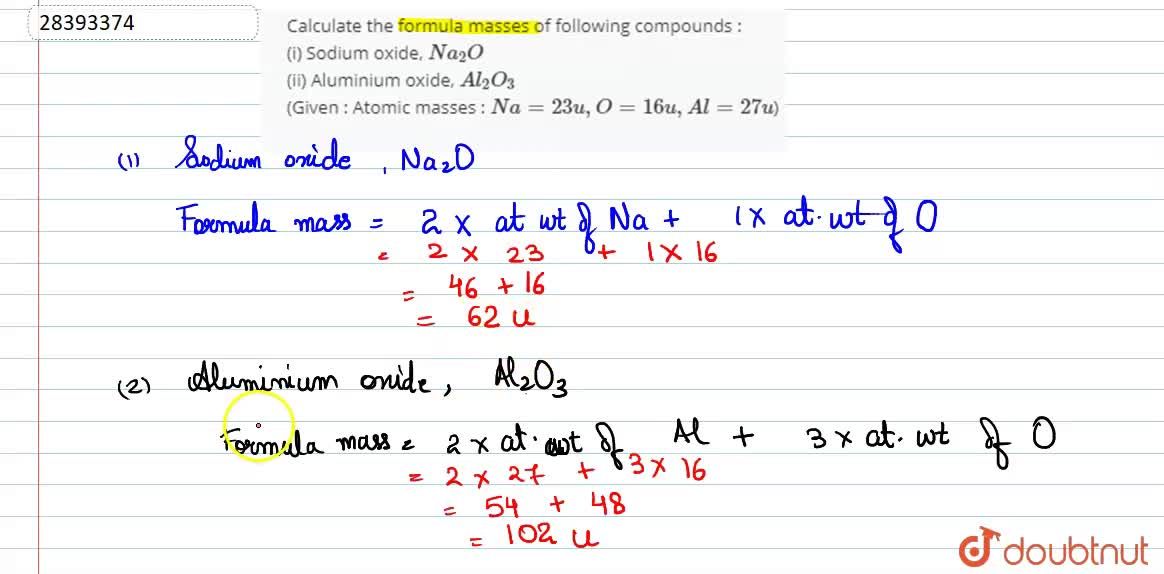 28393374
Calculate the formula masses of following compounds :
(i) Sodium oxide, Na₂O
(ii) Aluminium oxide, Al₂O₃
(Given : Atomic masses : Na = 23u, O = 16u, Al = 27u)
(1) Sodium oxide , Na₂O
Formula mass = 2 x at wt of Na + 1 x at. wt of O
= 2 x 23 + 1 x 16
= 46 + 16
= 62 u
(2) Aluminium oxide, Al₂O₃
Formula mass = 2 x at. wt of Al + 3 x at. wt of O
= 2 x 27 + 3 x 16
= 54 + 48
= 102 u
doubtnut